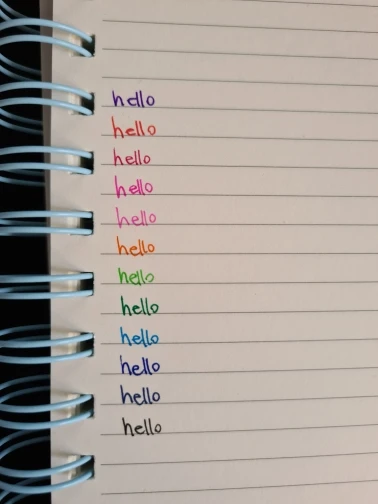 hello
hello
hello
hello
hello
hello
hello
hello
hello
hello
hello
hello